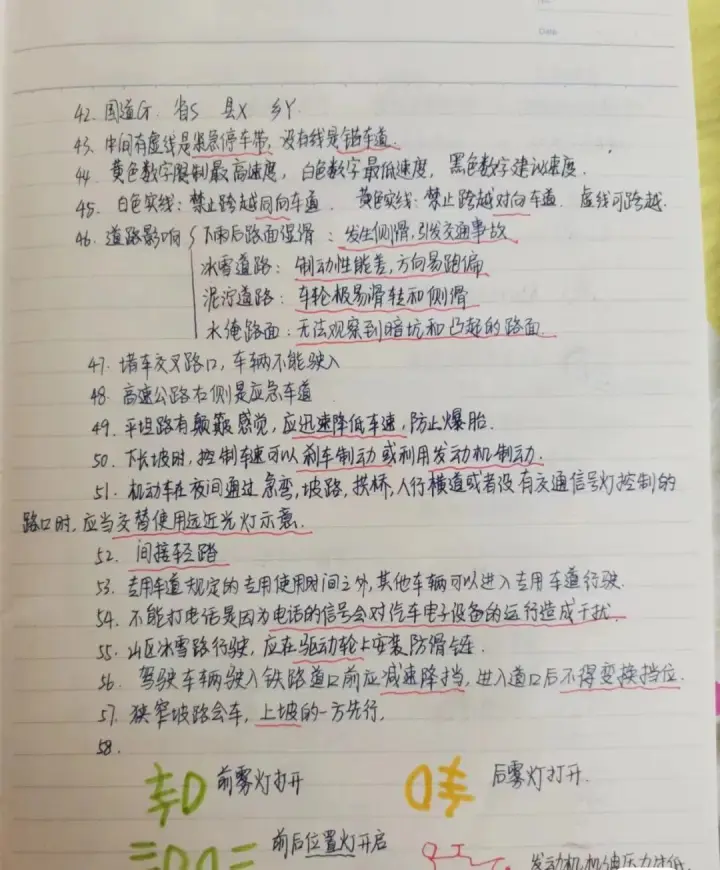 Date
42. 国道G. 省S 县X 乡Y.
43. 中间有虚线是紧急停车带, 没有线是错车道.
44. 黄色数字限制最高速度, 白色数字最低速度, 黑色数字建议速度.
45. 白色实线: 禁止跨越同向车道. 黄色实线: 禁止跨越对向车道. 虚线可跨越.
46. 道路影响 { 下雨后路面湿滑: 发生侧滑, 引发交通事故
冰雪道路: 制动性能差, 方向易跑偏
泥泞道路: 车轮极易滑转和侧滑
水淹路面: 无法观察到暗坑和凸起的路面.
47. 堵车交叉路口, 车辆不能驶入
48. 高速公路右侧是应急车道
49. 平坦路有颠簸感觉, 应迅速降低车速, 防止爆胎.
50. 下长坡时, 控制车速可以刹车制动或利用发动机制动.
51. 机动车在夜间通过急弯, 坡路, 拱桥, 人行横道或者没有交通信号灯控制的
路口时, 应当交替使用远近光灯示意.
52. 间接轻踏
53. 专用车道规定的专用使用时间之外, 其他车辆可以进入专用车道行驶.
54. 不能打电话是因为电话的信号会对汽车电子设备的运行造成干扰.
55. 山区冰雪路行驶, 应在驱动轮上安装防滑链.
56. 驾驶车辆驶入铁路道口前应减速降挡, 进入道口后不得变换挡位.
57. 狭窄坡路会车, 上坡的一方先行.
58.
前雾灯打开 后雾灯打开.
前后位置灯开启
发动机机油压力过低.